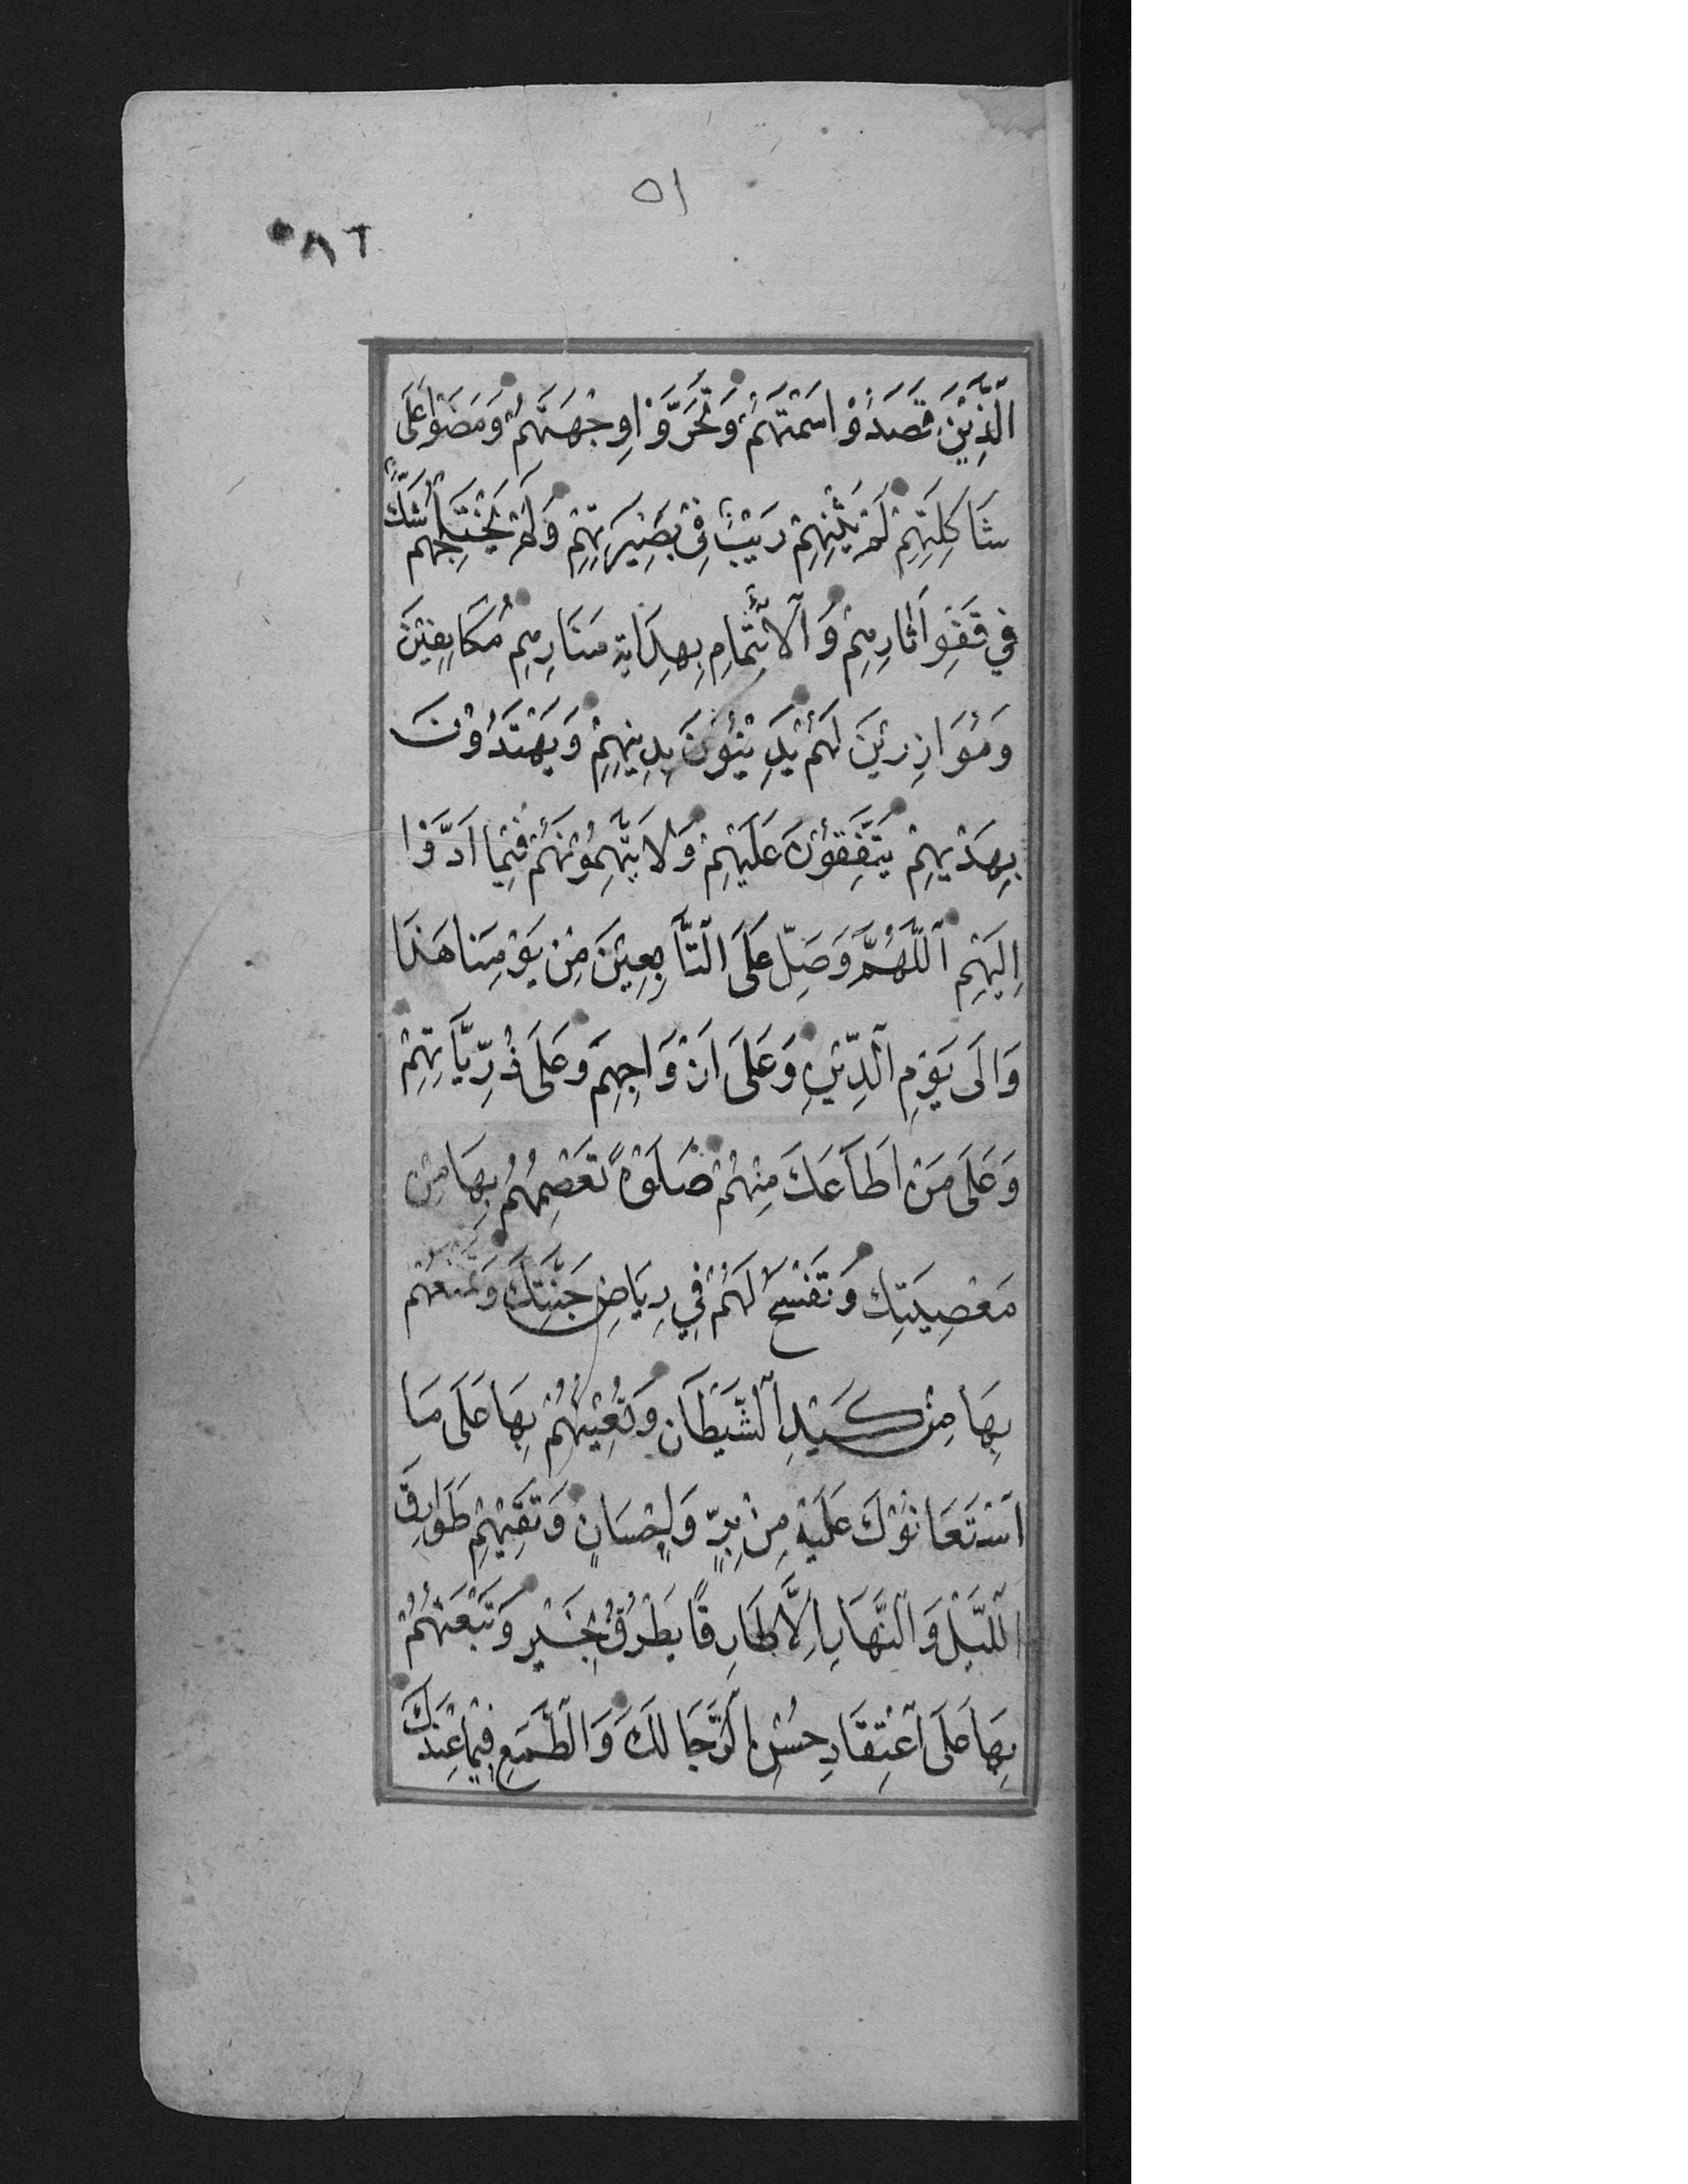 ٥١
٠٨٦
الَّذِيْنَ قَصَدُوْا سَمْتَهُمْ وَتَحَرَّوْا وِجْهَتَهُمْ وَمَضَوْا عَلَى
شَاكِلَتِهِمْ لَمْ يَثْنِهِمْ رَيْبٌ فِيْ بَصِيْرَتِهِمْ وَلَمْ يَخْتَلِجْهُمْ شَكٌّ
فِي قَفْوِ اٰثَارِهِمْ وَالْاِئْتِمَامِ بِهِدَايَةِ مَنَارِهِمْ مُكَانِفِيْنَ
وَمُوَازِرِيْنَ لَهُمْ يَدِيْنُوْنَ بِدِيْنِهِمْ وَيَهْتَدُوْنَ
بِهَدْيِهِمْ يَتَّفِقُوْنَ عَلَيْهِمْ وَلَا يَتَّهِمُوْنَهُمْ فِيْمَا اَدَّوْا
اِلَيْهِمْ اَللّٰهُمَّ وَصَلِّ عَلَى التَّابِعِيْنَ مِنْ يَوْمِنَا هَذَا
وَاِلَى يَوْمِ الدِّيْنِ وَعَلَى اَزْوَاجِهِمْ وَعَلَى ذُرِّيَّاتِهِمْ
وَعَلَى مَنْ اَطَاعَكَ مِنْهُمْ صَلَوةً تَعْصِمُهُمْ بِهَا مِنْ
مَعْصِيَتِكَ وَتَفْسَحُ لَهُمْ فِي رِيَاضِ جَنَّتِكَ وَتَمْنَعُهُمْ
بِهَا مِنْ كَيْدِ الشَّيْطَانِ وَتُعِيْنُهُمْ بِهَا عَلَى مَا
اسْتَعَانُوْكَ عَلَيْهِ مِنْ بِرٍّ وَاِحْسَانٍ وَتَقِيْهِمْ طَوَارِقَ
اللَّيْلِ وَالنَّهَارِ اِلَّا طَارِقًا يَطْرُقُ بِخَيْرٍ وَتَبْعَثُهُمْ
بِهَا عَلَى اعْتِقَادِ حُسْنِ الرَّجَا لَكَ وَالطَّمَعِ فِيْمَا عِنْدَكَ